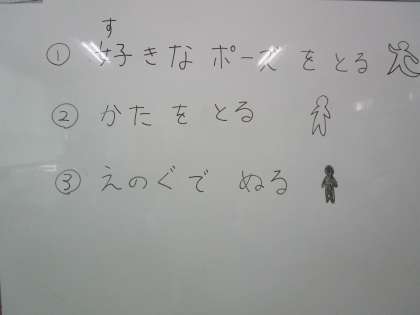 す
① 好きな ポーズ を とる
② かた を とる
③ えのぐで ぬる